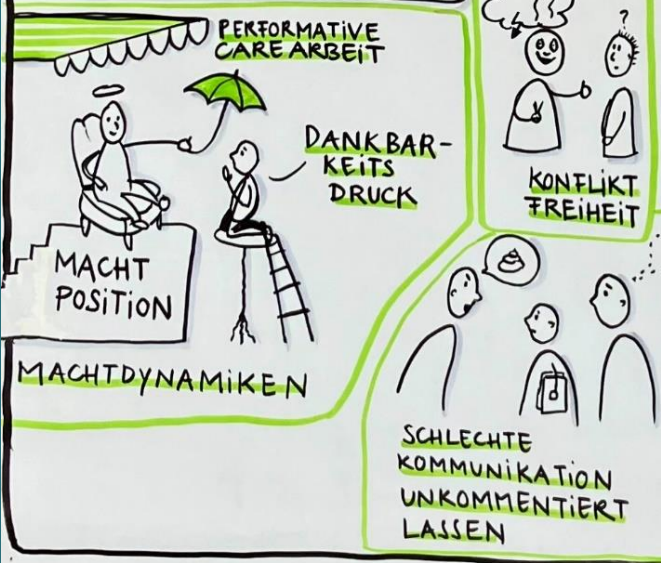 PERFORMATIVE
CAREARBEIT
DANKBAR-
KEITS
DRUCK
MACHT
POSITION
MACHTDYNAMIKEN
?
KONFLIKT
FREIHEIT
SCHLECHTE
KOMMUNIKATION
UNKOMMENTIERT
LASSEN